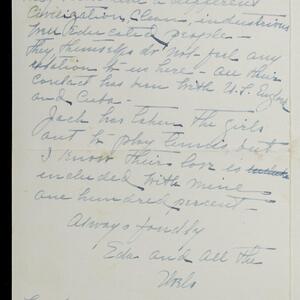 a different
Civilization, Clean, industrious
well educated people -
they themselves do not feel any
relation to us here - all their
contact has been with U.S. England
and Cuba -
Jack has taken the girls
out to play tennis but
I know their love is
included with mine
one hundred percent -
Always fondly
Eda and all the